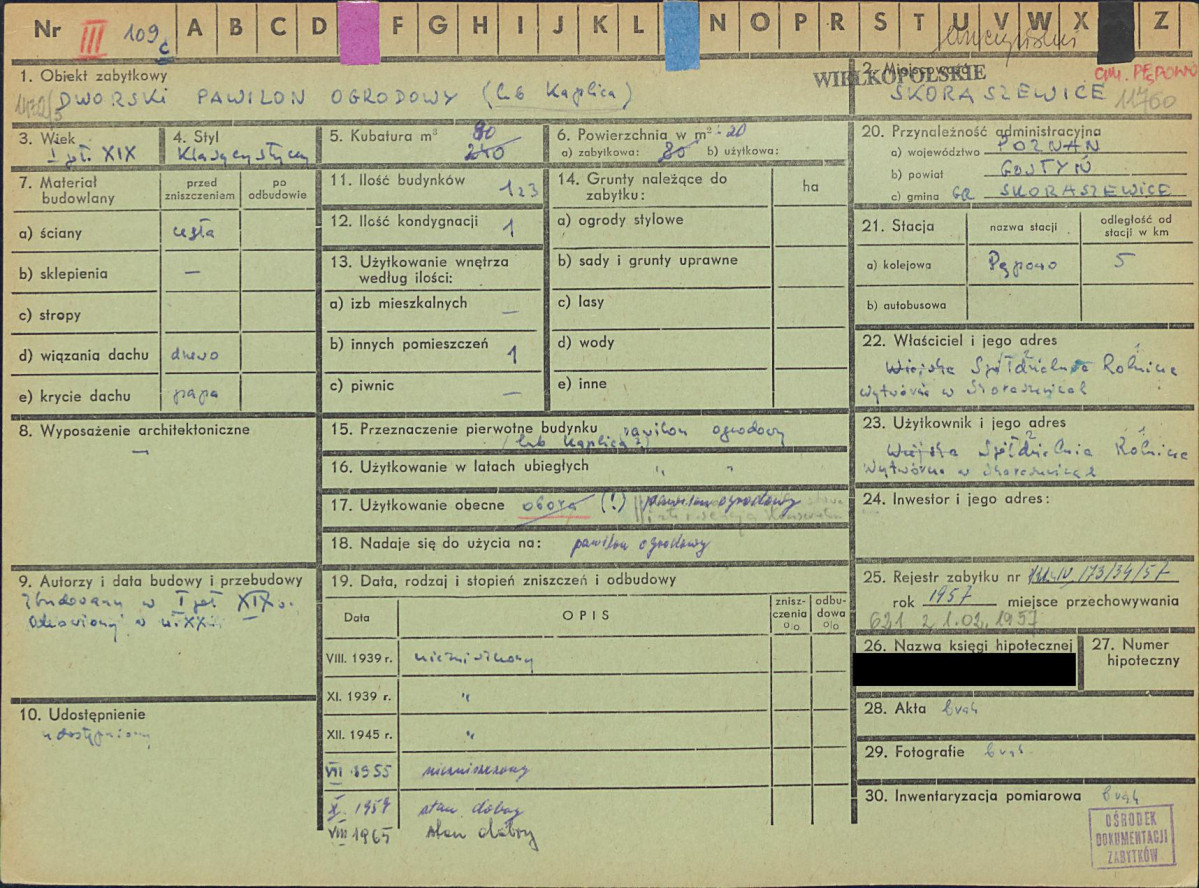 Nr III 109 c A B C D F G H I J K L N O P R S T U V W X Z
1. Obiekt zabytkowy
DWORSKI PAWILON OGRODOWY (lub Kaplica)
WIELKOPOLSKIE
2. Miejscowość
gm. PĘPOWO
SKORASZEWICE 11760
3. Wiek
I poł. XIX
4. Styl
Klasycystyczny
5. Kubatura m³ 80
240
6. Powierzchnia w m² 20
a) zabytkowa: 80 b) użytkowa:
7. Materiał budowlany
przed zniszczeniem
po odbudowie
a) ściany cegła
b) sklepienia —
c) stropy
d) wiązania dachu drewo
e) krycie dachu papa
8. Wyposażenie architektoniczne
—
9. Autorzy i data budowy i przebudowy
Zbudowany w I poł XIX w.
10. Udostępnienie
udostępniony
11. Ilość budynków 123
12. Ilość kondygnacji 1
13. Użytkowanie wnętrza według ilości:
a) izb mieszkalnych —
b) innych pomieszczeń 1
c) piwnic —
14. Grunty należące do zabytku:
ha
a) ogrody stylowe
b) sady i grunty uprawne
c) lasy
d) wody
e) inne
15. Przeznaczenie pierwotne budynku pawilon ogrodowy
(lub Kaplica?)
16. Użytkowanie w latach ubiegłych " "
17. Użytkowanie obecne obora (!) pawilon ogrodowy
18. Nadaje się do użycia na: pawilon ogrodowy
19. Data, rodzaj i stopień zniszczeń i odbudowy
Data
OPIS
zniszczenia %
odbudowa %
VIII. 1939 r. niezniszczony
XI. 1939 r. "
XII. 1945 r. "
VII 1955 niezniszczony
X. 1959 stan dobry
VIII 1965 stan dobry
20. Przynależność administracyjna
a) województwo POZNAŃ
b) powiat GOSTYŃ
c) gmina GR SKORASZEWICE
21. Stacja
nazwa stacji
odległość od stacji w km
a) kolejowa Pępowo 5
b) autobusowa
22. Właściciel i jego adres
Wiejska Spółdzielnia Rolnicza
Wytwórcza w Skoraszewicach
23. Użytkownik i jego adres
Wiejska Spółdzielnia Rolnicza
Wytwórcza w Skoraszewicach
24. Inwestor i jego adres:
25. Rejestr zabytku nr Kl.IV 173/34/57
rok 1957 miejsce przechowywania
621 z 1.02.1957
26. Nazwa księgi hipotecznej
27. Numer hipoteczny
28. Akta brak
29. Fotografie brak
30. Inwentaryzacja pomiarowa brak
OŚRODEK
DOKUMENTACJI
ZABYTKÓW